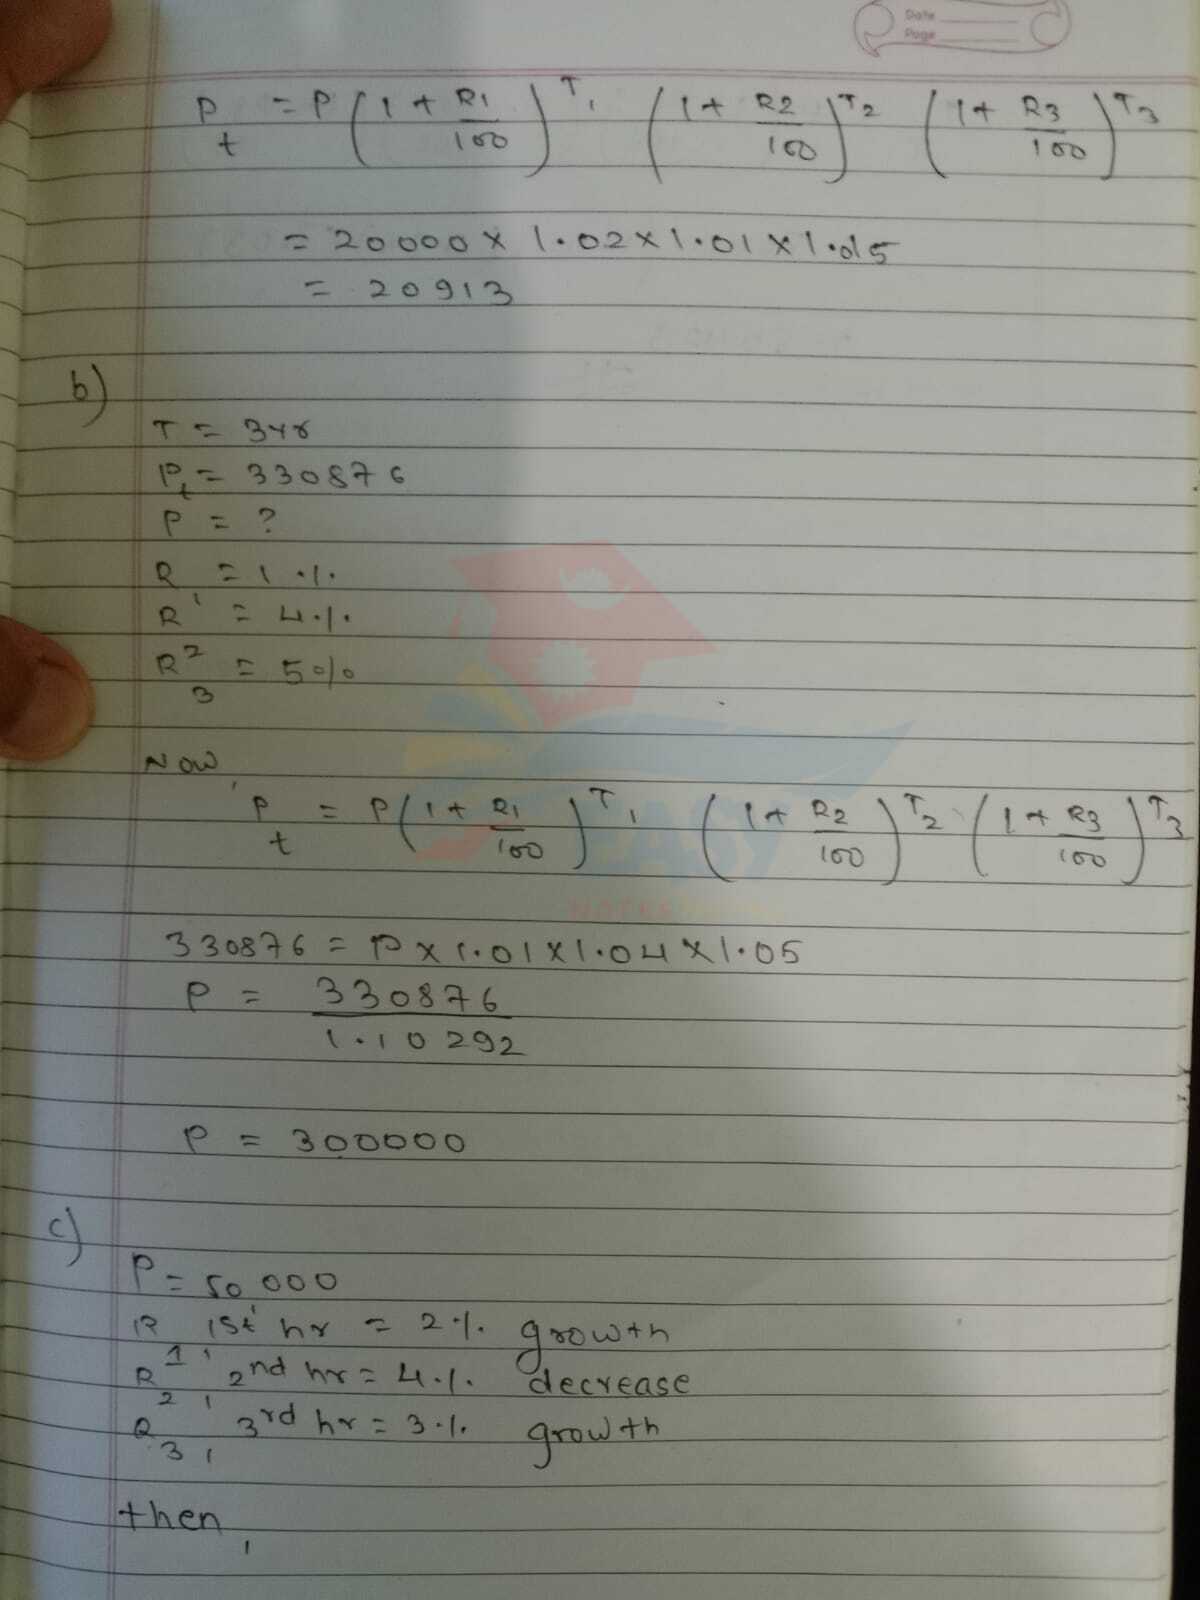 Date
Page
P_t = P (1 + R1/100)^T1 (1 + R2/100)^T2 (1 + R3/100)^T3
= 20000 × 1.02 × 1.01 × 1.015
= 20913
b)
T = 3yr
P_t = 330876
P = ?
R_1 = 1 %
R_2 = 4 %
R_3 = 5 %
Now,
P_t = P (1 + R1/100)^T1 (1 + R2/100)^T2 (1 + R3/100)^T3
330876 = P × 1.01 × 1.04 × 1.05
P = 330876/1.10292
P = 300000
c)
P = 50,000
R_1, 1st hr = 2 % growth
R_2, 2nd hr = 4 % decrease
R_3, 3rd hr = 3 % growth
then,